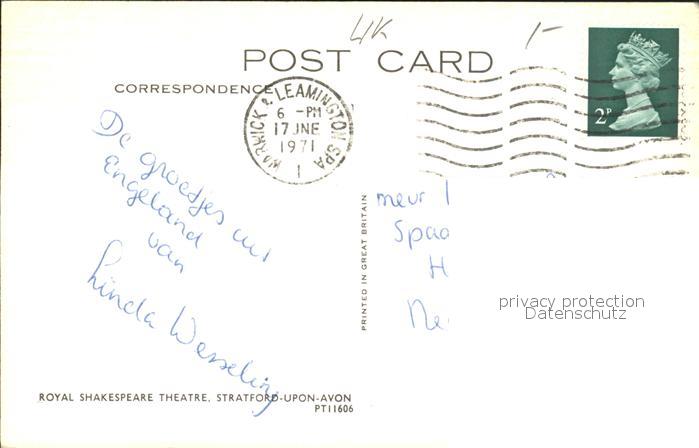 UK
1-
POST CARD
CORRESPONDENCE
WARWICK & LEAMINGTON SPA
6 - PM
17 JNE
1971
1
2P
De groetjes uit
Engeland
van
Linda Wesseling
PRINTED IN GREAT BRITAIN
meur
Spaa
H
Ne
privacy protection
Datenschutz
ROYAL SHAKESPEARE THEATRE, STRATFORD-UPON-AVON
PT11606